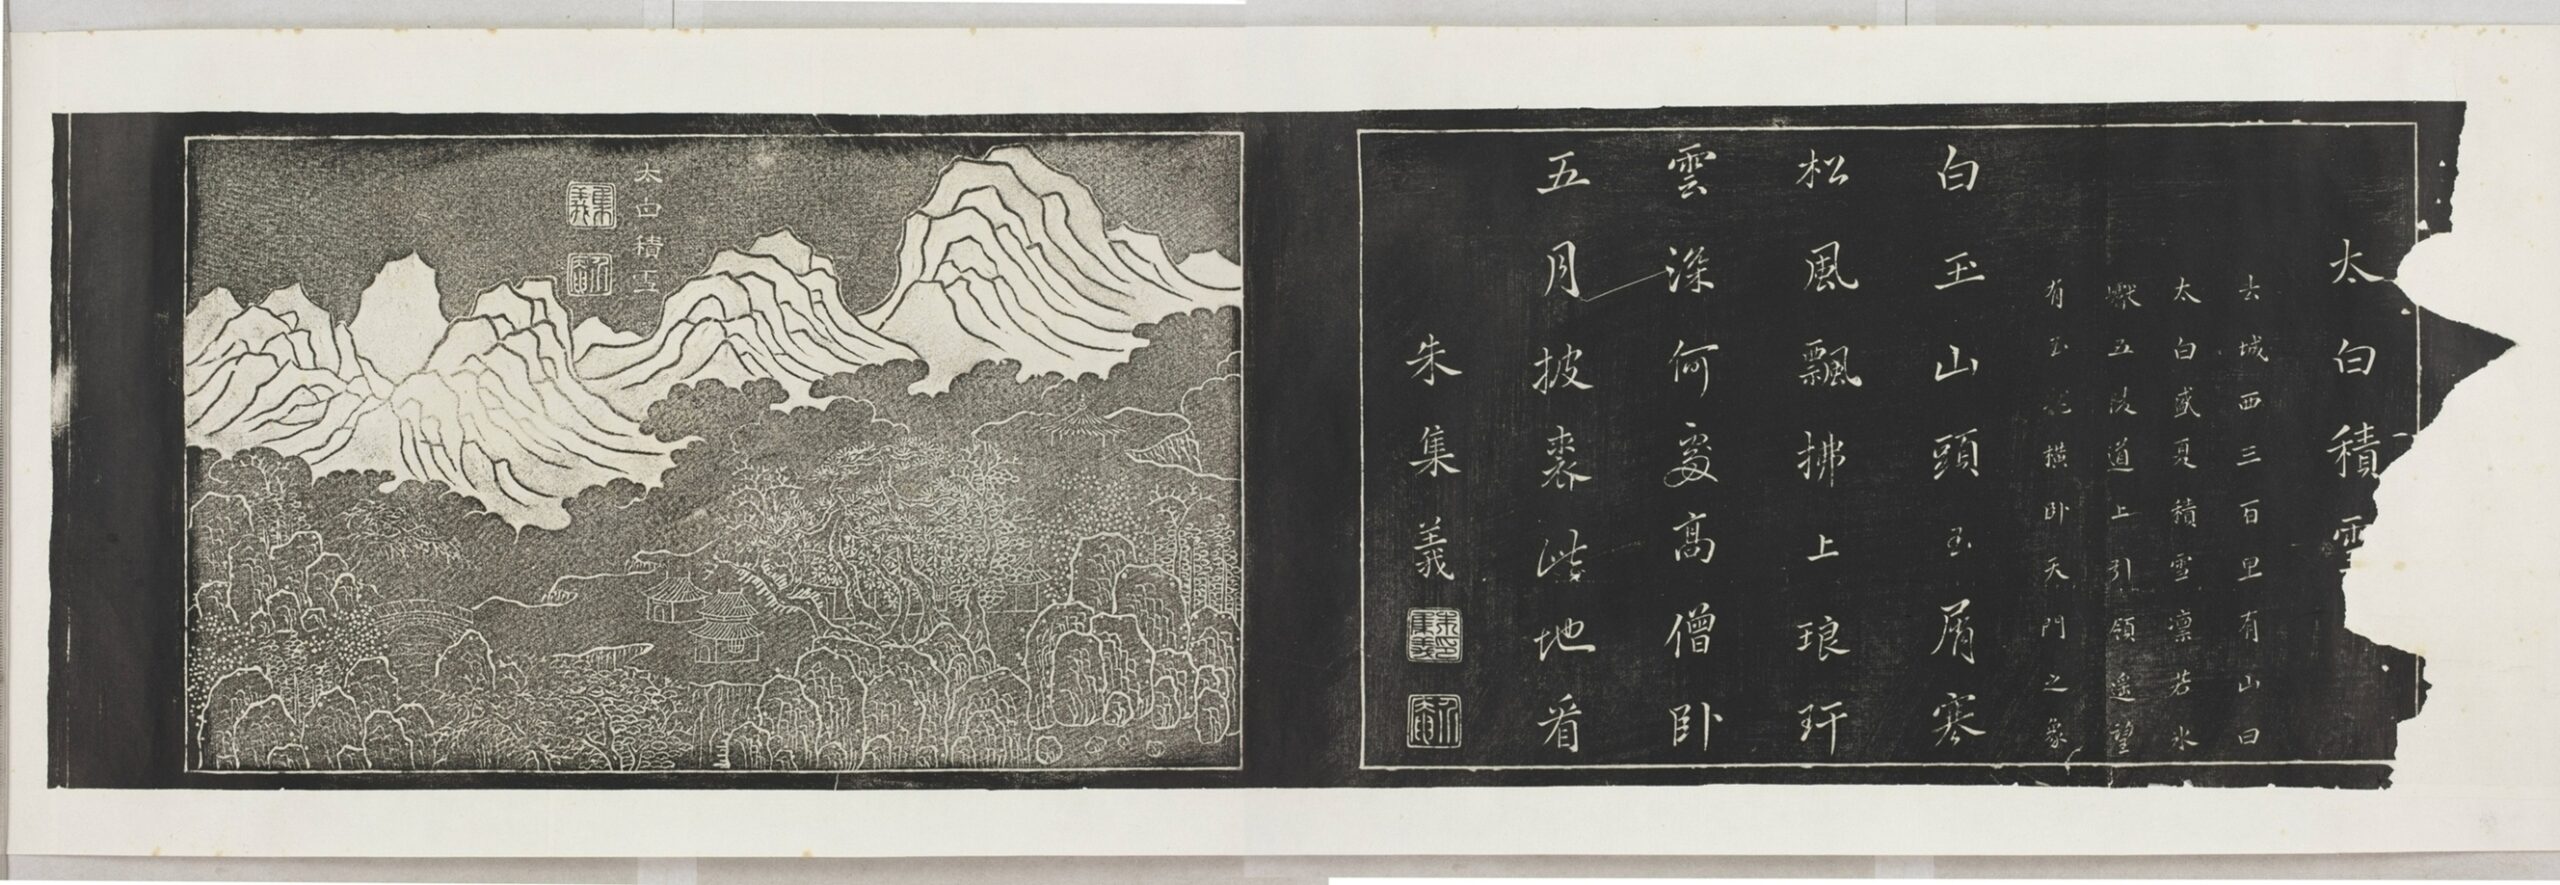 太白積雪
去城西三百里有山曰
太白盛夏積雪凜若氷
獸五陂道上引領遥望
有玉龍橫卧天門之象
白玉山頭玉屑寒
松風飄拂上琅玕
雲深何處高僧卧
五月披裘此地看
朱集義
朱集義印
太白積雪
集義